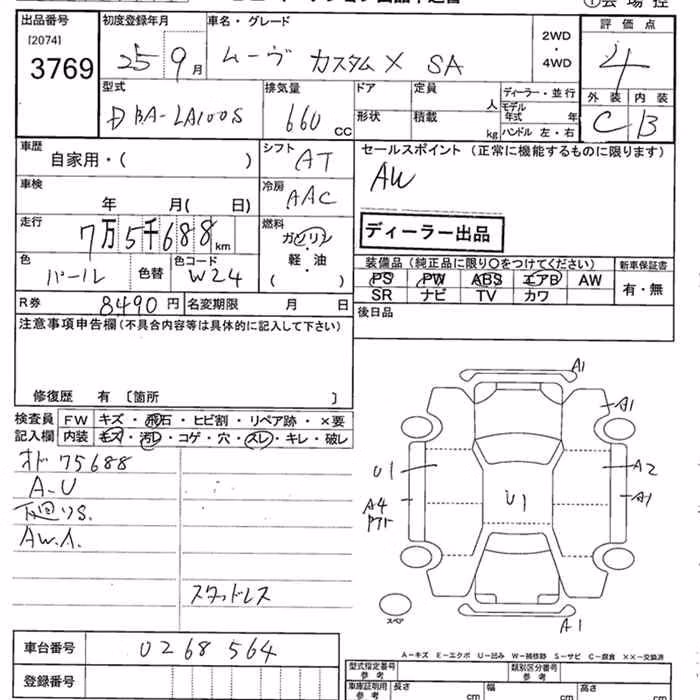 出品番号 初度登録年月 車名・グレード 評価点
[2074] 3769
25 9月 ムーヴ カスタム X SA 2WD・4WD 4
型式 排気量 ドア 定員 人 ディーラー・並行 外装 内装
DBA-LA100S 660 CC 形状 積載 kg モデル年式 年 C B
ハンドル 左・右
車歴 自家用・( ) シフト AT セールスポイント(正常に機能するものに限ります)
車検 年 月( 日) 冷房 AAC AW
走行 7万5千688km 燃料 ガソリン・軽・油 ( ) ディーラー出品
色 パール 色替 色コード W24 装備品(純正品に限り○をつけてください) 新車保証書
PS PW ABS エアB AW 有・無
SR ナビ TV カワ
R券 8490円 名変期限 月 日 後日品
注意事項申告欄(不具合内容等は具体的に記入して下さい)
修復歴 有 [箇所 ]
検査員 FW キズ・飛石・ヒビ割・リペア跡・×要
記入欄 内装 キズ・汚レ・コゲ・穴・スレ・キレ・破レ
オド 75688
A-U
下廻りS.
AW.A.
スタッドレス
A1
A1
U1 A2
U1
A4 A1
スペア
A1
A-キズ E-エクボ U-凹み W-補修跡 S-サビ C-腐食 ××-交換済
車台番号 0268564
型式指定番号 参考 類別区分番号 参考
登録番号 車庫証明用 参考 長さ cm 幅 cm 高さ cm